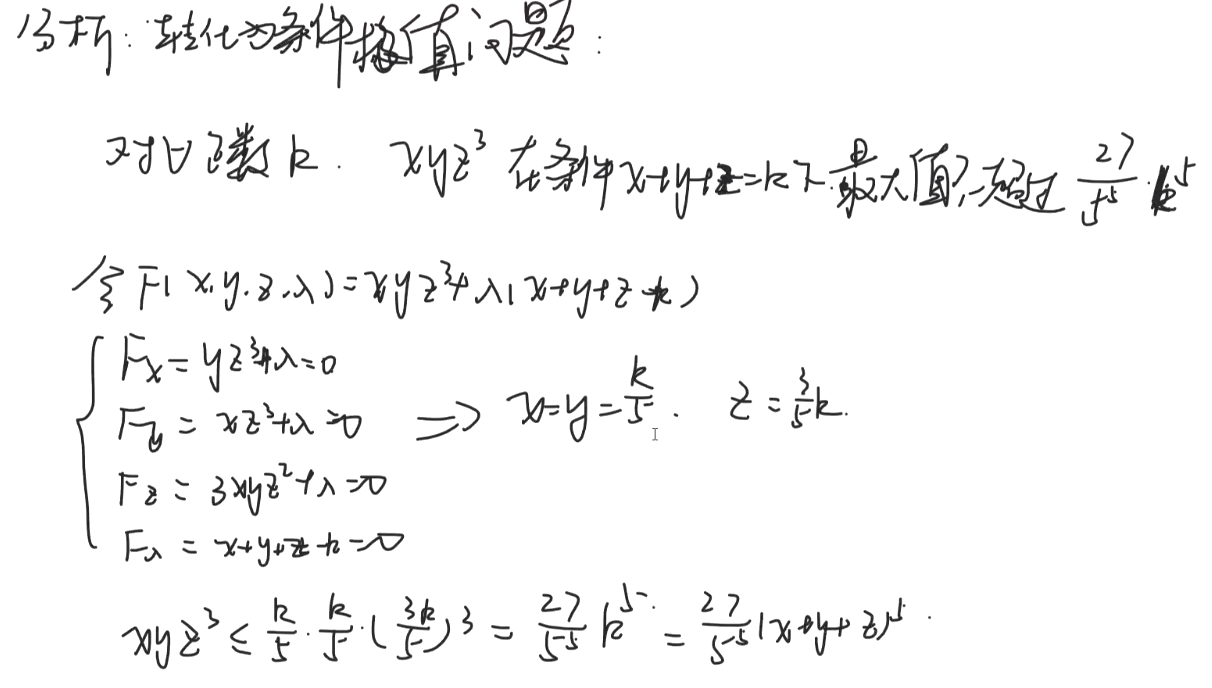 分析：转化为条件极值问题：
对∀正数k. xyz³ 在条件x+y+z=k下最大值不超过 27/5⁵ k⁵
令F(x,y,z,λ)=xyz³+λ(x+y+z-k)
Fx=yz³+λ=0
Fy=xz³+λ=0 ⇒ x=y=k/5. z=3/5k.
Fz=3xyz²+λ=0
Fλ=x+y+z-k=0
xyz³≤k/5·k/5·(3k/5)³=27/5⁵k⁵=27/5⁵(x+y+z)⁵.